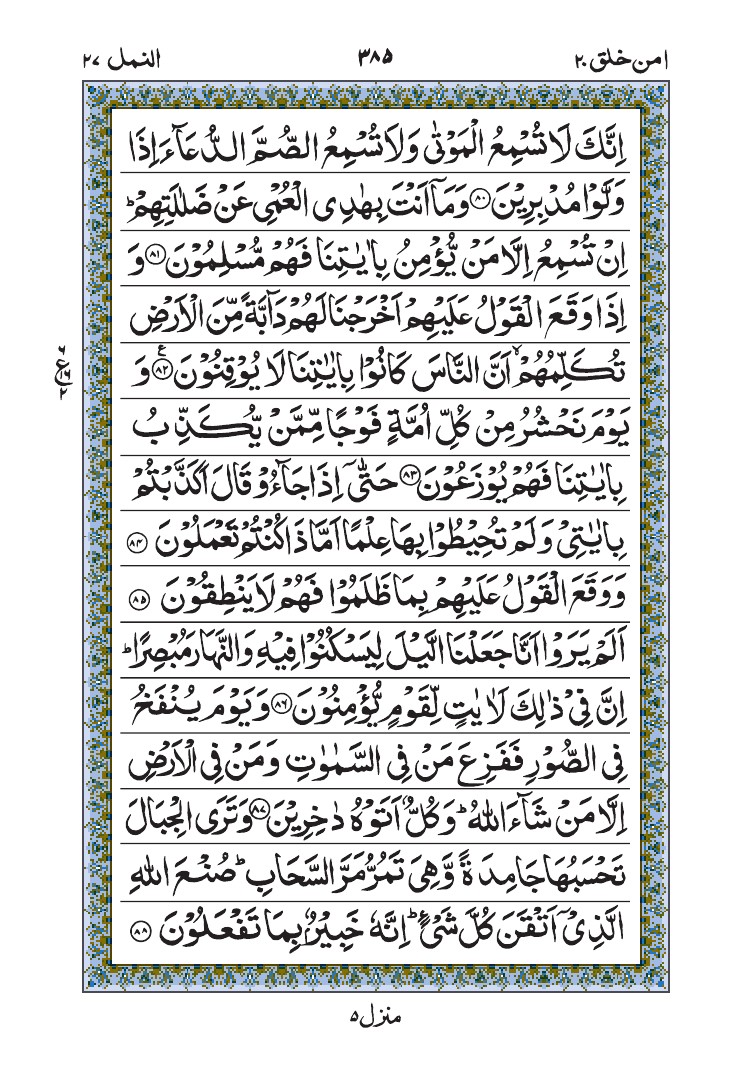 امن خلق ٢٠
٣٨٥
النمل ٢٧
اِنَّكَ لَا تُسْمِعُ الْمَوْتٰى وَلَا تُسْمِعُ الصُّمَّ الدُّعَآءَ اِذَا
وَلَّوْا مُدْبِرِيْنَ ﴿٨٠﴾ وَمَآ اَنْتَ بِهٰدِى الْعُمْىِ عَنْ ضَلٰلَتِهِمْ ؕ
اِنْ تُسْمِعُ اِلَّا مَنْ يُّؤْمِنُ بِاٰيٰتِنَا فَهُمْ مُّسْلِمُوْنَ ﴿٨١﴾ وَ
اِذَا وَقَعَ الْقَوْلُ عَلَيْهِمْ اَخْرَجْنَا لَهُمْ دَآبَّةً مِّنَ الْاَرْضِ
تُكَلِّمُهُمْ ۙ اَنَّ النَّاسَ كَانُوْا بِاٰيٰتِنَا لَا يُوْقِنُوْنَ ﴿٨٢﴾ ع وَ
يَوْمَ نَحْشُرُ مِنْ كُلِّ اُمَّةٍ فَوْجًا مِّمَّنْ يُّكَذِّبُ
بِاٰيٰتِنَا فَهُمْ يُوْزَعُوْنَ ﴿٨٣﴾ حَتّٰٓى اِذَا جَآءُوْ قَالَ اَكَذَّبْتُمْ
بِاٰيٰتِىْ وَلَمْ تُحِيْطُوْا بِهَا عِلْمًا اَمَّاذَا كُنْتُمْ تَعْمَلُوْنَ ﴿٨٤﴾
وَوَقَعَ الْقَوْلُ عَلَيْهِمْ بِمَا ظَلَمُوْا فَهُمْ لَا يَنْطِقُوْنَ ﴿٨٥﴾
اَلَمْ يَرَوْا اَنَّا جَعَلْنَا الَّيْلَ لِيَسْكُنُوْا فِيْهِ وَالنَّهَارَ مُبْصِرًا ؕ
اِنَّ فِىْ ذٰلِكَ لَاٰيٰتٍ لِّقَوْمٍ يُّؤْمِنُوْنَ ﴿٨٦﴾ وَيَوْمَ يُنْفَخُ
فِى الصُّوْرِ فَفَزِعَ مَنْ فِى السَّمٰوٰتِ وَمَنْ فِى الْاَرْضِ
اِلَّا مَنْ شَآءَ اللّٰهُ ؕ وَكُلٌّ اَتَوْهُ دٰخِرِيْنَ ﴿٨٧﴾ وَتَرَى الْجِبَالَ
تَحْسَبُهَا جَامِدَةً وَّهِىَ تَمُرُّ مَرَّ السَّحَابِ ؕ صُنْعَ اللّٰهِ
الَّذِىْٓ اَتْقَنَ كُلَّ شَىْءٍ ؕ اِنَّهٗ خَبِيْرٌۢ بِمَا تَفْعَلُوْنَ ﴿٨٨﴾
منزل ٥